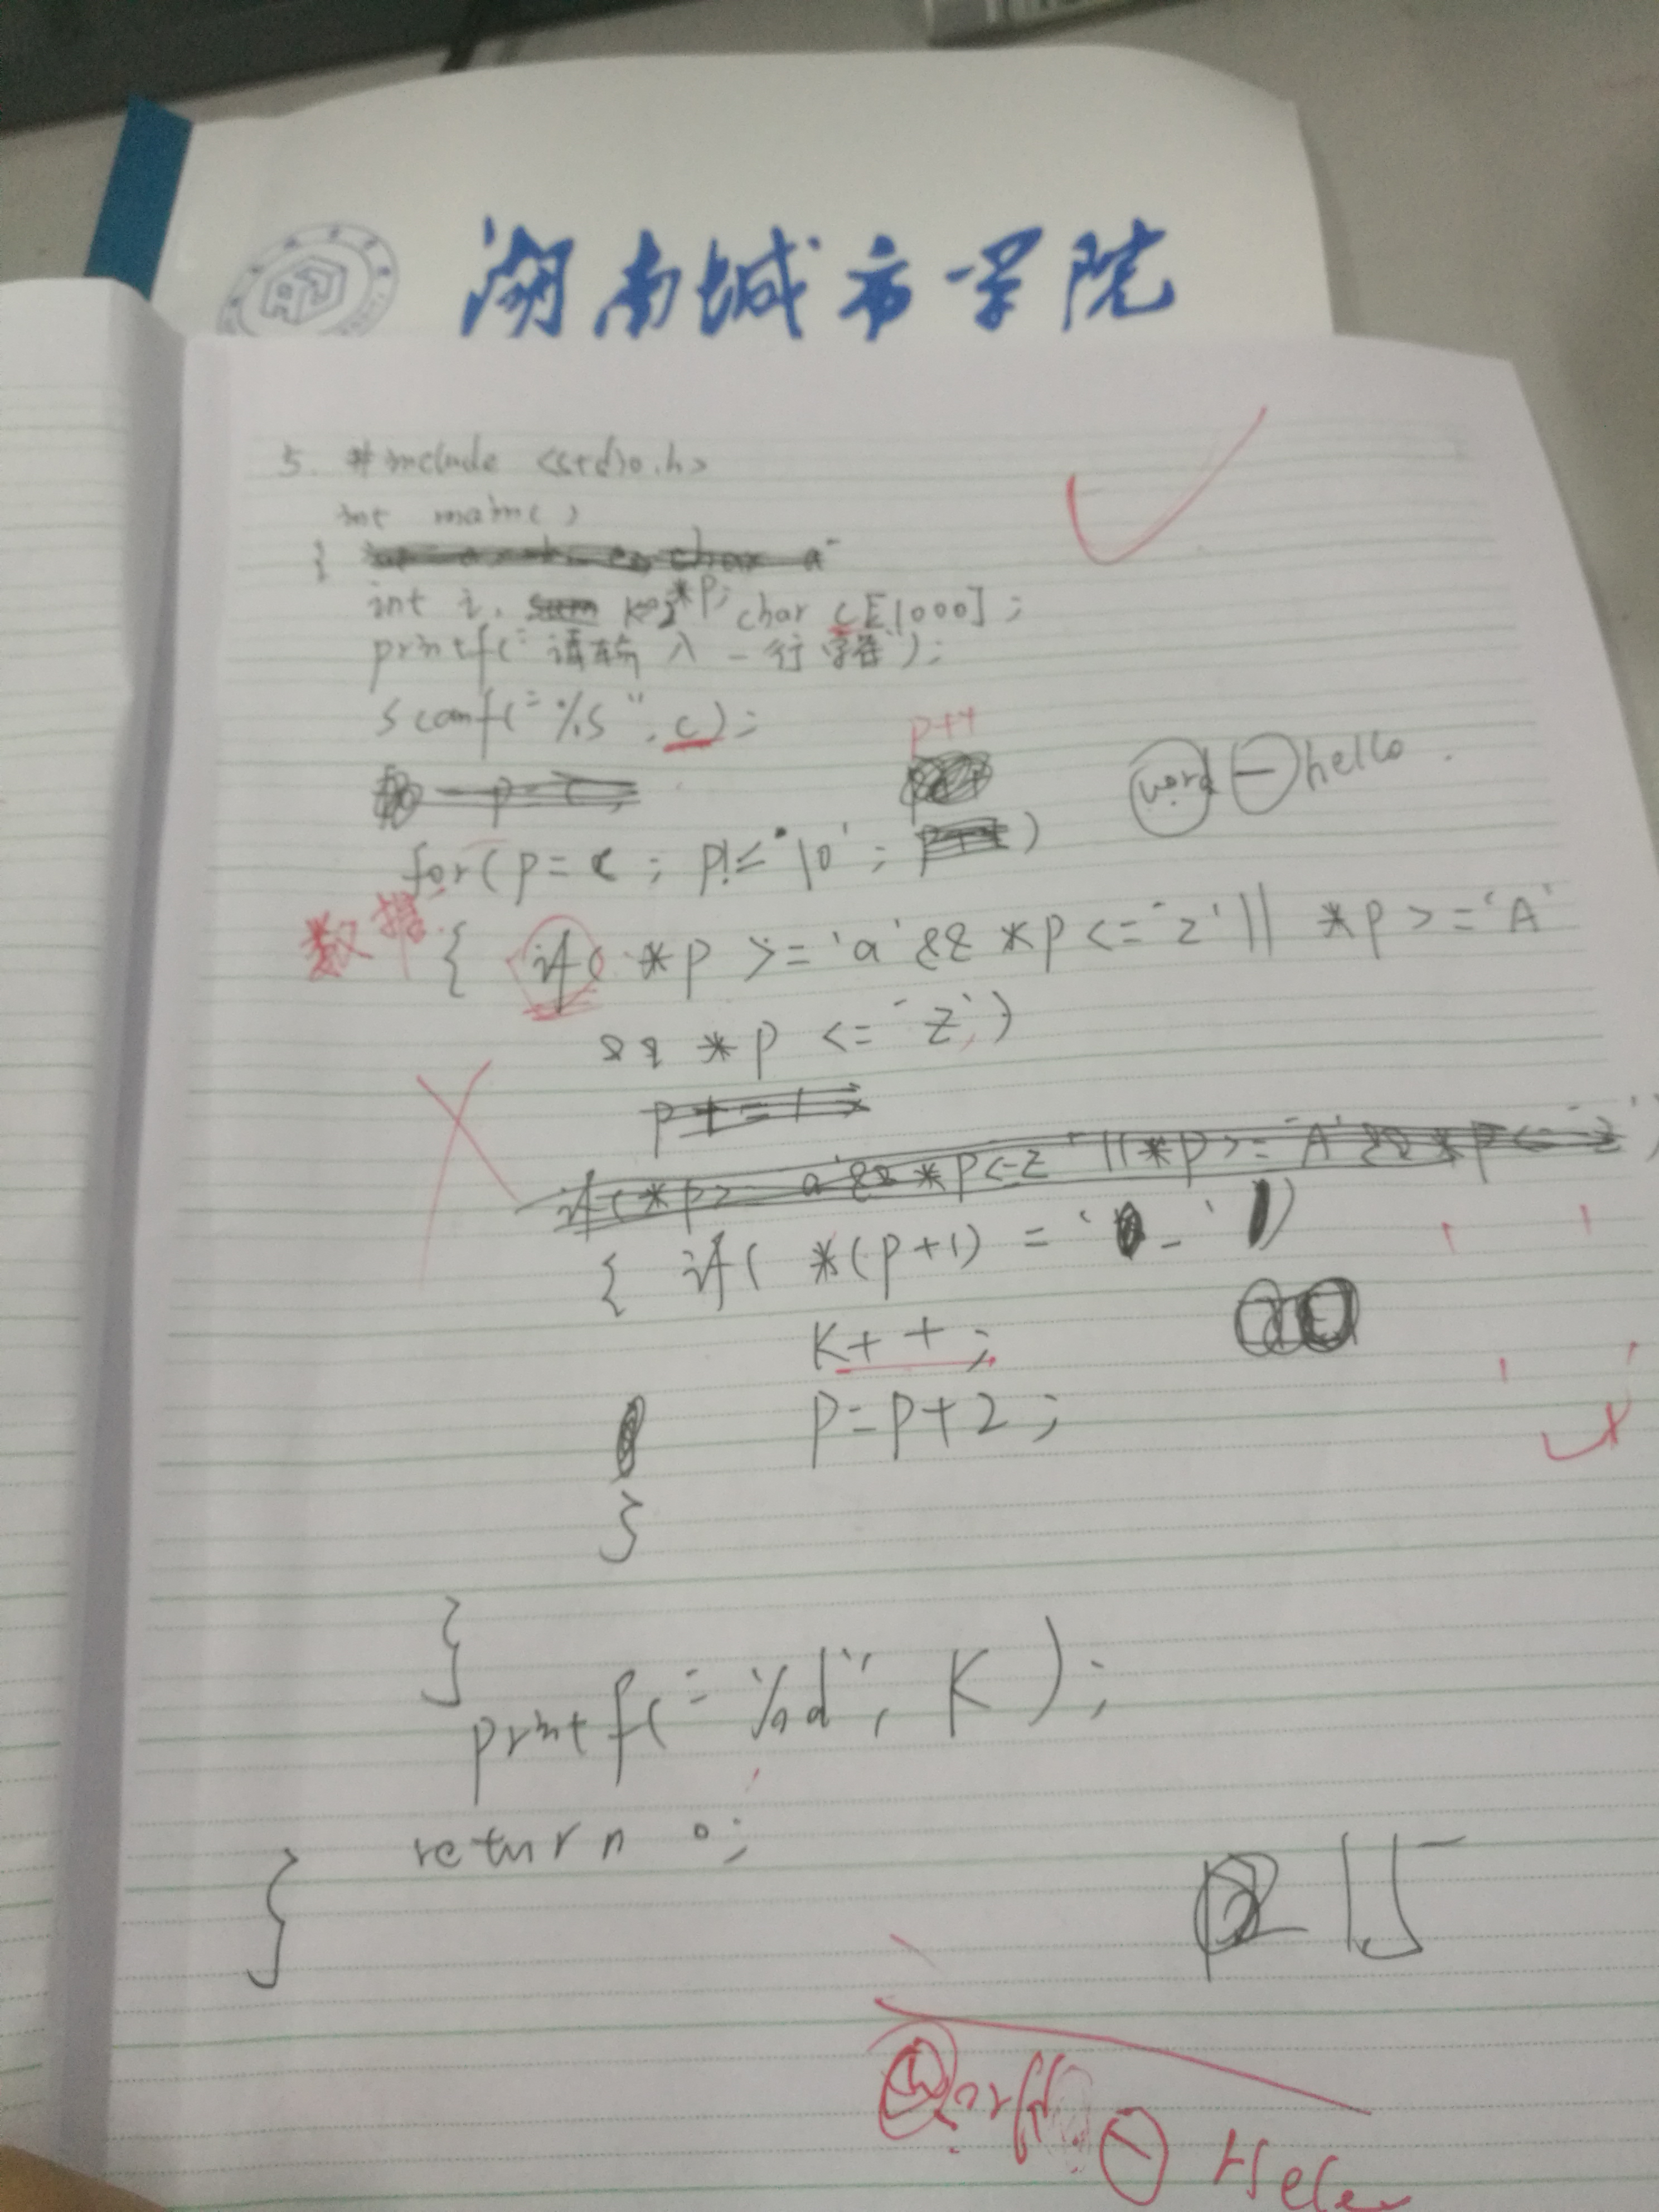 湖南城市学院
5. #include <stdio.h>
int main()
{
int i, *p; char c[1000];
printf("请输入一行字符");
scanf("%s", c);
p++
word - hello.
for(p=c; p!='\0';
数据
{ if( *p >= 'a' && *p <= 'z' || *p >= 'A'
&& *p <= 'Z')
{ if( *(p+1) = ' _ ' )
K++;
p=p+2;
}
}
printf("%d", K);
return 0;
}